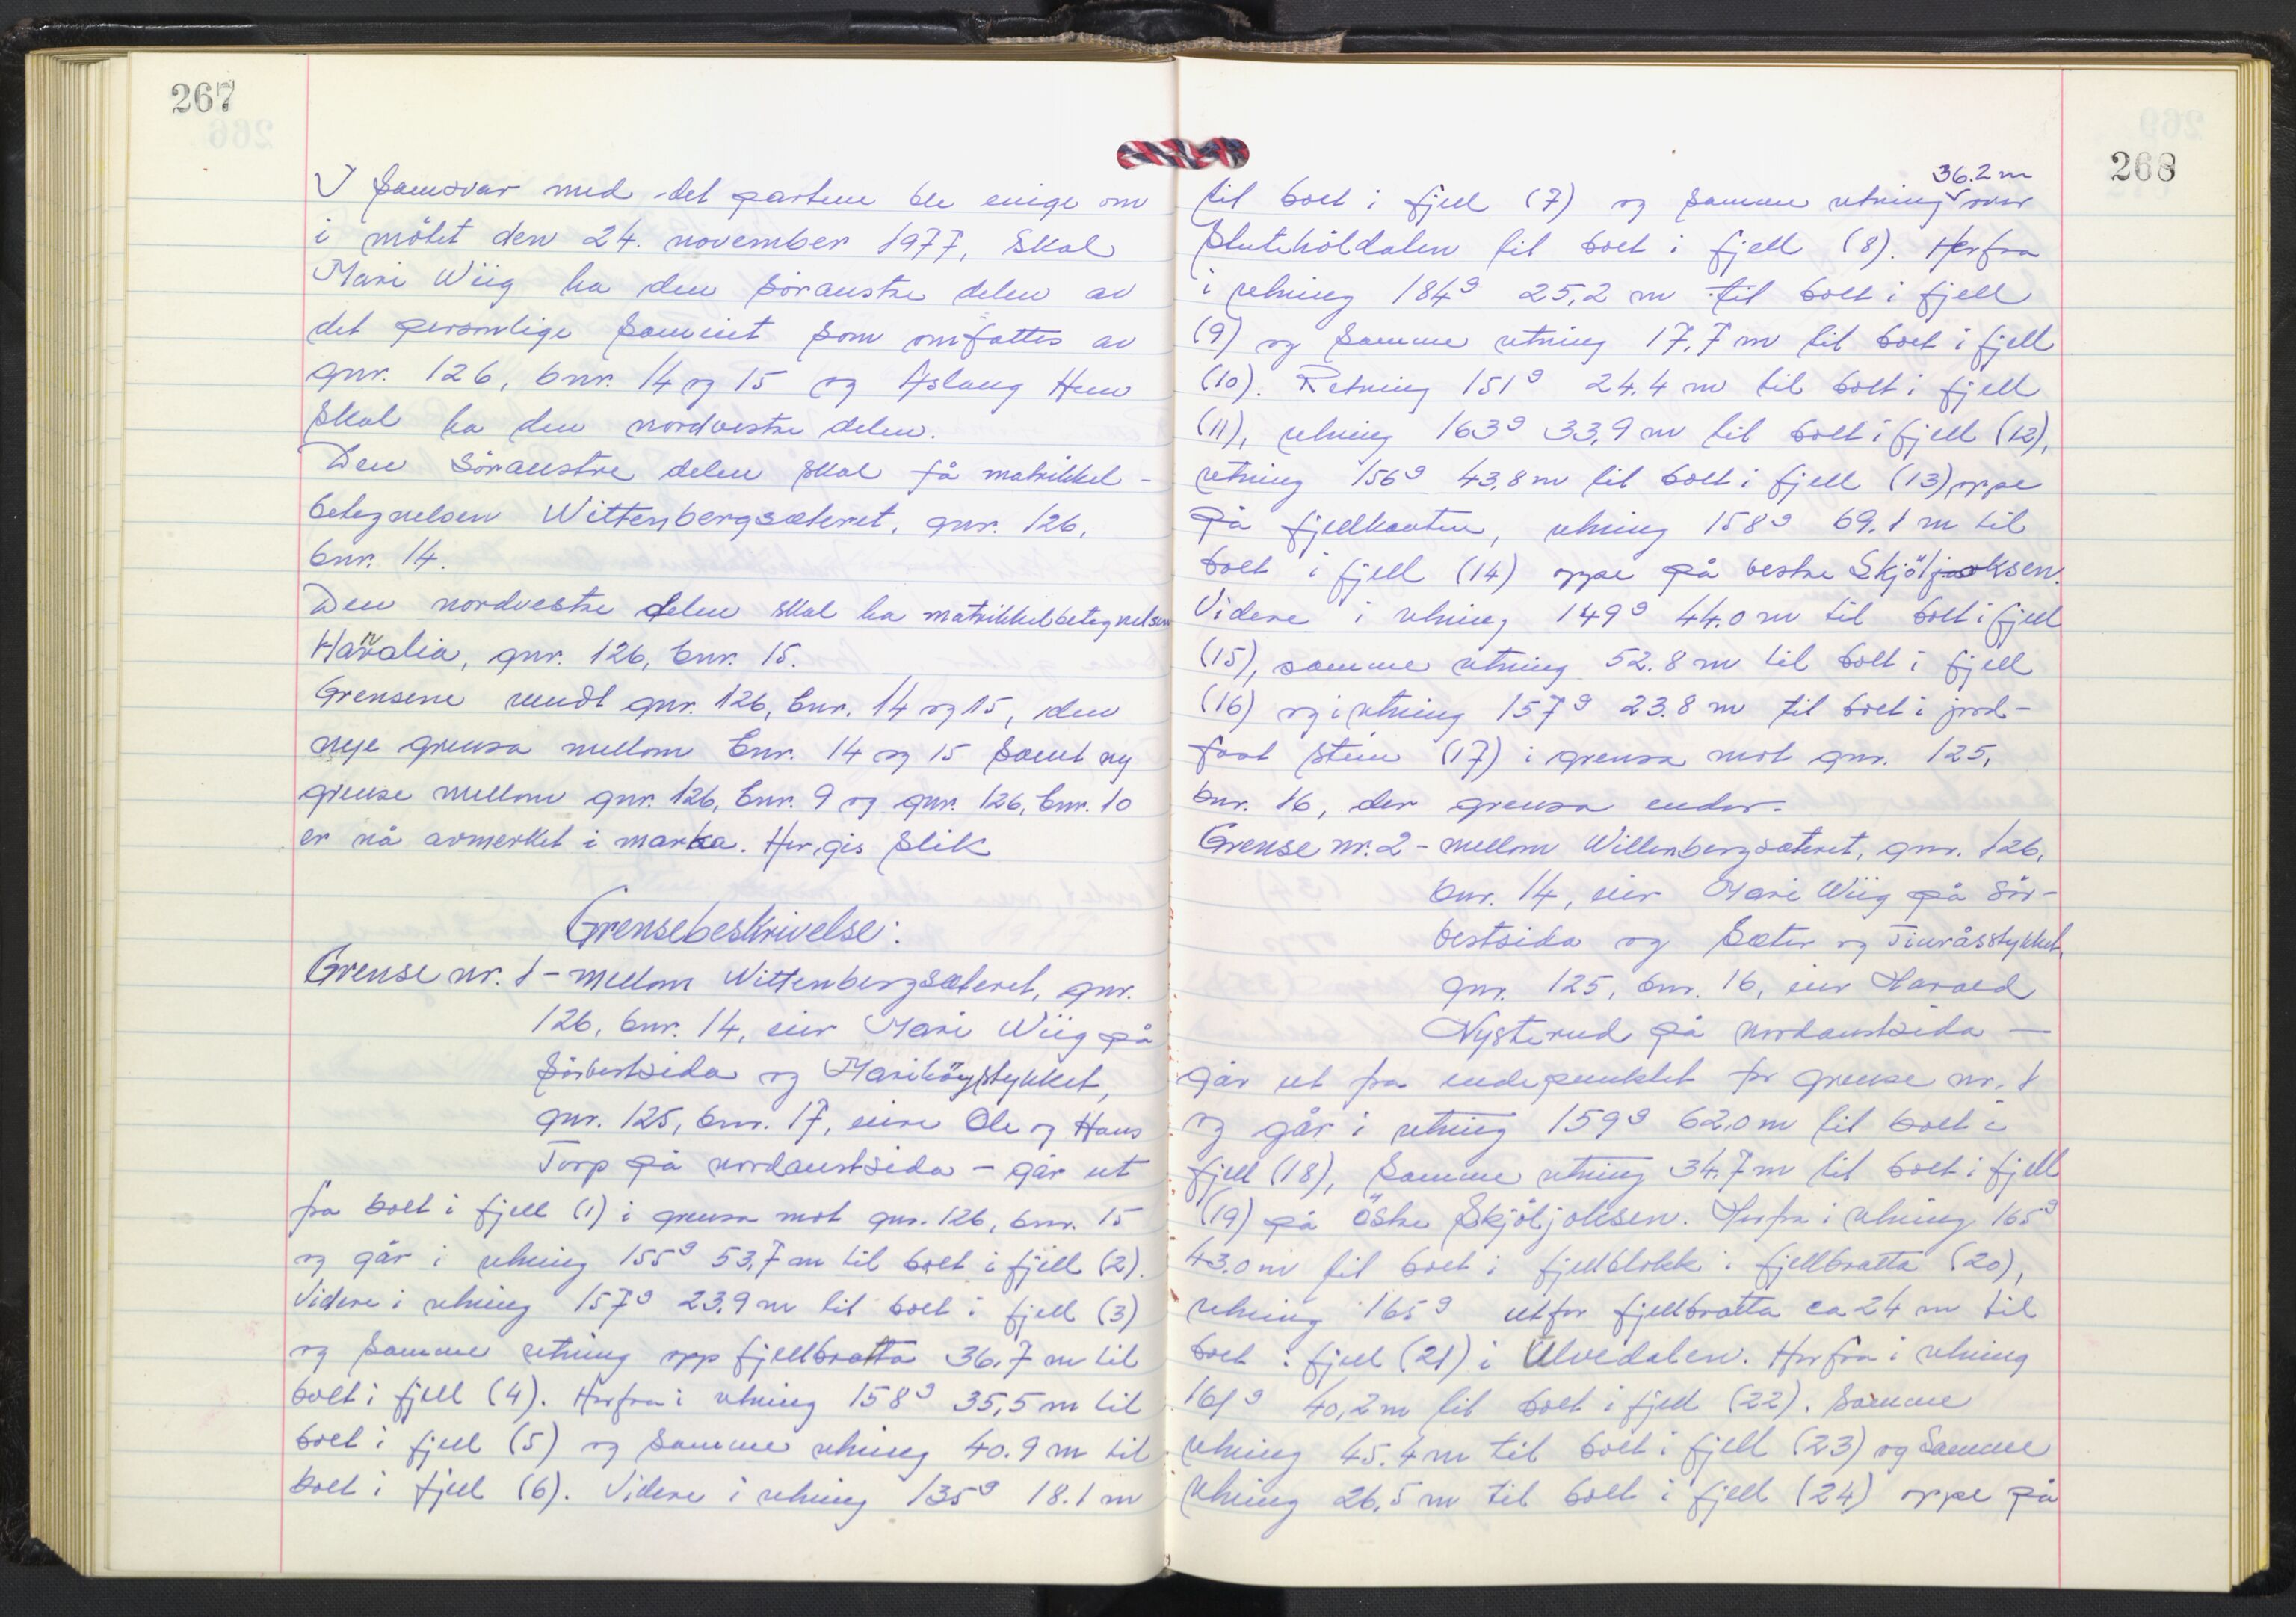 267
I samsvar med det partene ble enige om
i møtet den 24. november 1977, skal
Mari Wiig ha den søraustre delen av
det personlige sameiet som omfattes av
gnr. 126, bnr. 14 og 15 og Aslaug Hem
skal ha den nordvestre delen.
Den søraustre delen skal få matrikkel-
betegnelsen Wittenbergsæteret, gnr. 126,
bnr. 14.
Den nordvestre delen skal ha matrikkelbetegnelsen
Hanalia, gnr. 126, bnr. 15.
Grensene rundt gnr. 126, bnr. 14 og 15, den
nye grensa mellom bnr. 14 og 15 samt ny
grense mellom gnr. 126, bnr. 9 og gnr. 126, bnr. 10
er nå avmerket i marka. Her gis slik
Grensebeskrivelse:
Grense nr. 1 - mellom Wittenbergsæteret, gnr.
126, bnr. 14, eier Mari Wiig på
sørvestsida og Marihøystykket,
gnr. 125, bnr. 17, eiere Ole og Hans
Torp på nordaustsida - går ut
fra bolt i fjell (1) i grensa mot gnr. 126, bnr. 15
og går i retning 155g 53,7 m til bolt i fjell (2).
Videre i retning 157g 23.9 m til bolt i fjell (3)
og samme retning opp fjellbratta 36,7 m til
bolt i fjell (4). Herfra i retning 158g 35,5 m til
bolt i fjell (5) og samme retning 40.9 m til
bolt i fjell (6). Videre i retning 135g 18.1 m
268
36.2 m
til bolt i fjell (7) og samme retning over
Slutehöldalen til bolt i fjell (8). Herfra
i retning 184g 25,2 m til bolt i fjell
(9) og samme retning 17,7 m til bolt i fjell
(10). Retning 151g 24.4 m til bolt i fjell
(11), retning 163g 33,9 m til bolt i fjell (12),
retning 156g 43,8 m til bolt i fjell (13) oppe
på fjellkanten, retning 158g 69.1 m til
bolt i fjell (14) oppe på vestre Skjöljoksen.
Videre i retning 149g 44.0 m til bolt i fjell
(15), samme retning 52.8 m til bolt i fjell
(16) og i retning 157g 23.8 m til bolt i jord-
fast stein (17) i grensa mot gnr. 125,
bnr. 16, der grensa ender.
Grense nr. 2 - mellom Wittenbergsæteret, gnr. 126,
bnr. 14, eier Mari Wiig på sør-
vestsida og Sæter og Tiuråsstykket,
gnr. 125, bnr. 16, eier Harald
Nysterud på nordaustsida -
går ut fra endepunktet for grense nr. 1
og går i retning 159g 62,0 m til bolt i
fjell (18), samme retning 34,7 m til bolt i fjell
(19) på östre Skjöljoksen. Herfra i retning 165g
43.0 m til bolt i fjellblokk i fjellbratta (20),
retning 165g utfor fjellbratta ca 24 m til
bolt i fjell (21) i Ulvedalen. Herfra i retning
161g 40,2 m til bolt i fjell (22). Samme
retning 45.4 m til bolt i fjell (23) og samme
retning 26,5 m til bolt i fjell (24) oppe på